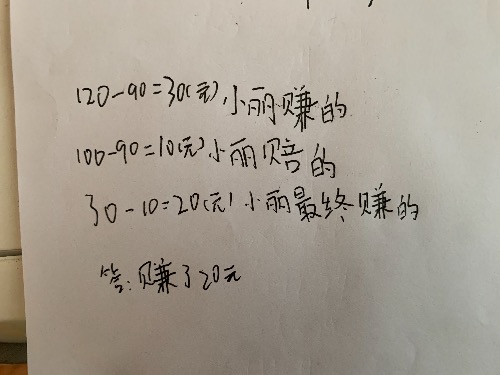 120-90=30(元)小丽赚的
100-90=10(元)小丽赔的
30-10=20(元)小丽最终赚的
答:赚了20元